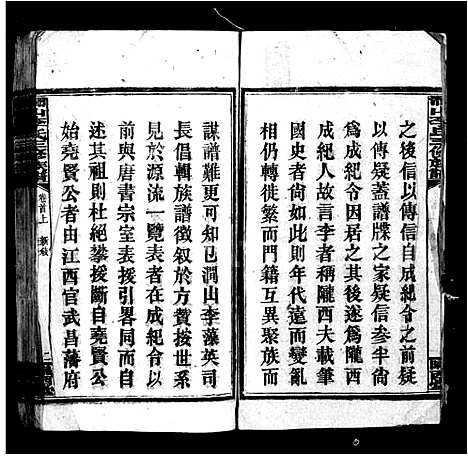 之後信以傳信自成紀令之前疑
以傳疑蓋譜牒之家疑信叅半尚
爲成紀令因居之其後遂爲隴西
成紀人故言李者稱隴西夫載筆
國史者尚如此則年代遠而變亂
相仍轉徙繁而門籍互異聚族而
謀譜難可知已澗山李藻英司
長倡輯族譜徵叙於方贊按世系
見於源流一覽表者在成紀令以
前與唐書宗室表援引畧同而自
述其祖則杜絕攀援斷自堯賢公
始堯賢公者由江西官武昌藩府
卷首上